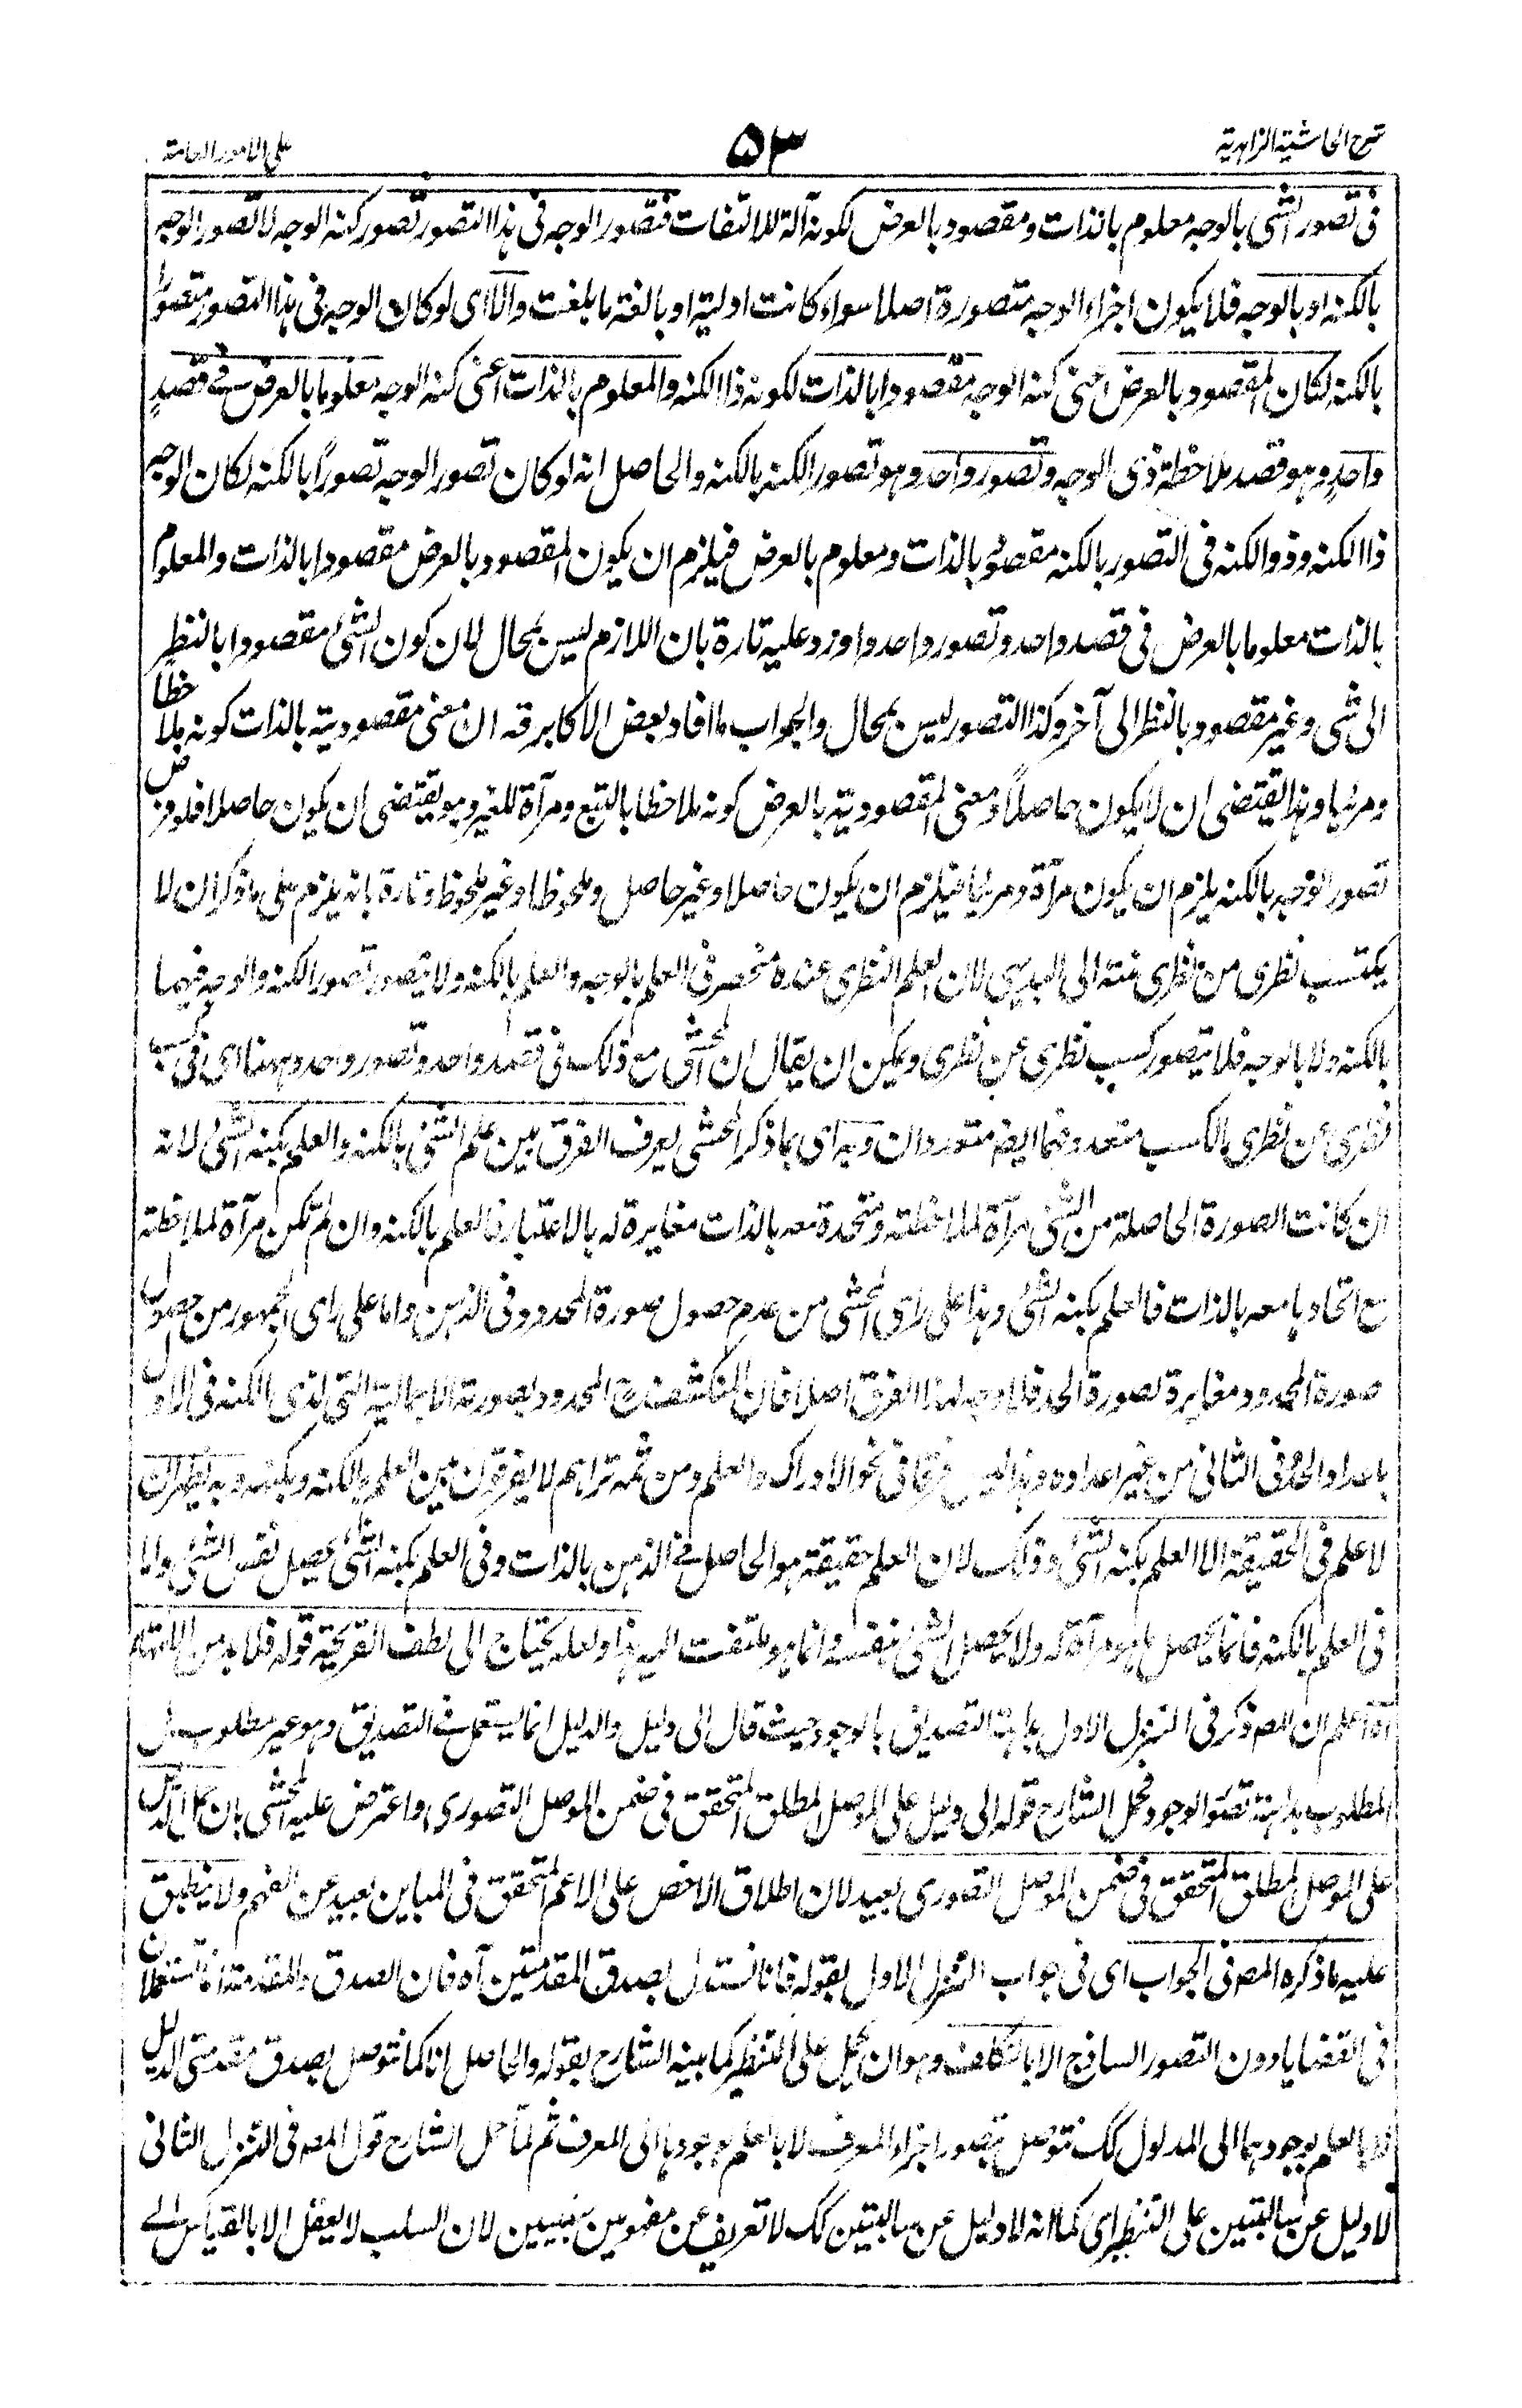 شرح الحاشية الزاهدية
۵۳
على الامور العامة
فى تصور الشئ بالوجه معلوم بالذات ومقصود بالعرض لكونه آلة للالتفات فتصور الوجه فى هذا التصور تصور كنه الوجه لا تصور الوجه
بالكنه او بالوجه فلا يكون اجزاء الوجه متصورة اصلا سواء كانت اولية او بالغة ما بلغت والا اى لو كان الوجه فى هذا التصور متصورا
بالكنه لكان المقصود بالعرض اعنى كنه الوجه مقصودا بالذات لكونه ذا الكنه والمعلوم بالذات اعنى كنه الوجه معلوما بالعرض فى قصدٍ
واحدٍ وهو قصد ملاحظة ذى الوجه وتصور واحد وهو تصور الكنه بالكنه والحاصل انه لو كان تصور الوجه تصوراً بالكنه لكان الوجه
ذا الكنه وذو الكنه فى التصور بالكنه مقصود بالذات ومعلوم بالعرض فيلزم ان يكون المقصود بالعرض مقصودا بالذات والمعلوم
بالذات معلوما بالعرض فى قصد واحد وتصور واحد واورد عليه تارة بان اللازم ليس بمحال لان كون الشئ مقصودا بالنظر
الى شئ وغير مقصود بالنظر الى آخر وكذا التصور ليس بمحال والجواب ما افاد بعض الاكابر قه ان معنى مقصوديته بالذات كونه ملاحظا
ومرئيا وهذا يقتضى ان لا يكون حاصلاً ومعنى المقصودية بالعرض كونه ملاحظا بالتبع ومرآة للغير وهو يقتضى ان يكون حاصلا فلو فرض
تصور الوجه بالكنه يلزم ان يكون مرآة ومرئيا فيلزم ان يكون حاصلا وغير حاصل وملحوظا وغير ملحوظ وتارة بانه يلزم على ما ذكر ان لا
يكتسب نظرى من نظرى منته الى البديهى لان العلم النظرى عنده منحصر فى العلم بالوجه والعلم بالكنه ولا يتصور تصور الكنه والوجه فيهما
بالكنه ولا بالوجه فلا يتصور كسب نظرى عن نظرى ويمكن ان يقال ان المحشى مع ذلك فى قصد واحد وتصور واحد وههنا اى فى كسب
نظرى عن نظرى بالكسب متعدد فهما ايضا متعددان وبه اى بما ذكر المحشى يعرف الفرق بين علم الشئ بالكنه والعلم بكنه الشئ لانه
ان كانت الصورة الحاصلة من الشئ مرآة لملاحظته ومتحدة معه بالذات مغايرة له بالاعتبار فالعلم بالكنه وان لم تكن مرآة لملاحظته
مع اتحادها معه بالذات فالعلم بكنه الشئ وهذا على راى المحشى من عدم حصول صورة المحدود فى الذهن واما على راى الجمهور من حصول
صورة المحدود مغايرة لصورة الحد فلا وجه لهذا الفرق اصلا فان المنكشف هو المحدود بصورته الاجمالية التى لذى الكنه فى الاول
باعداد الحد وفى الثانى من غير اعداده وهذا ليس فرقا فى نحو الادراك والعلم ومن ثمه تراهم لا يفرقون بين العلم بالكنه وبكنهه وبه يظهر ان
لا علم فى الحقيقة الا العلم بكنه الشئ وذلك لان العلم حقيقة هو الحاصل فى الذهن بالذات وفى العلم بكنه الشئ يحصل نفس الشئ واما
فى العلم بالكنه فانما يحصل ما هو مرآة له ولا يحصل الشئ بنفسه وانما هو ملتفت اليه هذا ولعله يحتاج الى لطف القريحة قوله فلا بد من الانتهاء
آه اعلم ان المصه ذكر فى التنزل الاول بداهة التصديق بالوجود حيث قال الى دليل والدليل انما يستعمل فى التصديق وهو غير مطلوب بل
المطلوب بداهة تصور الوجود فحمل الشارح قوله الى دليل على الموصل المطلق المتحقق فى ضمن الموصل التصورى واعترض عليه المحشى بان حمل الدليل
على الموصل المطلق المتحقق فى ضمن الموصل التصورى بعيد لان اطلاق الاخص على الاعم المتحقق فى المباين بعيد عن الفهم ولا ينطبق
عليه ما ذكره المصه فى الجواب اى فى جواب التنزل الاول بقوله فانا نستدل بصدق المقدمتين آه فان الصدق والمقدمة انما تستعملان
فى القضايا دون التصور الساذج الا بالتكلف وهو ان يحمل على التنظير كما بينه الشارح بقوله والحاصل انا كما نتوصل بصدق مقدمتى الدليل
لا بالعلم بوجودهما الى المدلول كك نتوصل بتصور اجزاء المعرف لا بالعلم بوجودها الى المعرف ثم لما حمل الشارح قول المصه فى التنزل الثانى
لا دليل عن سالبتين على التنظير اى كما انه لا دليل عن سالبتين كك لا تعريف عن مفهومين سلبيين لان السلب لا يعقل الا بالقياس الى